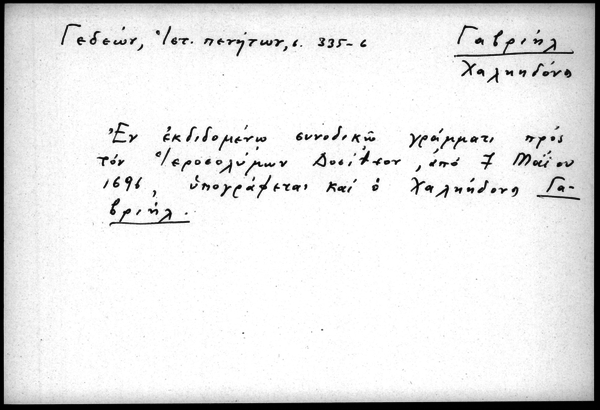 Γεδεών, Ἱστ. πενήτων, σ. 335-6
Γαβριήλ
Χαλκηδόνος
Ἐν ἐκδιδομένῳ συνοδικῷ γράμματι πρός
τόν Ἱεροσολύμων Δοσίθεον, ἀπό 7 Μαΐου
1696, ὑπογράφεται καί ὁ Χαλκηδόνος Γα-
βριήλ.